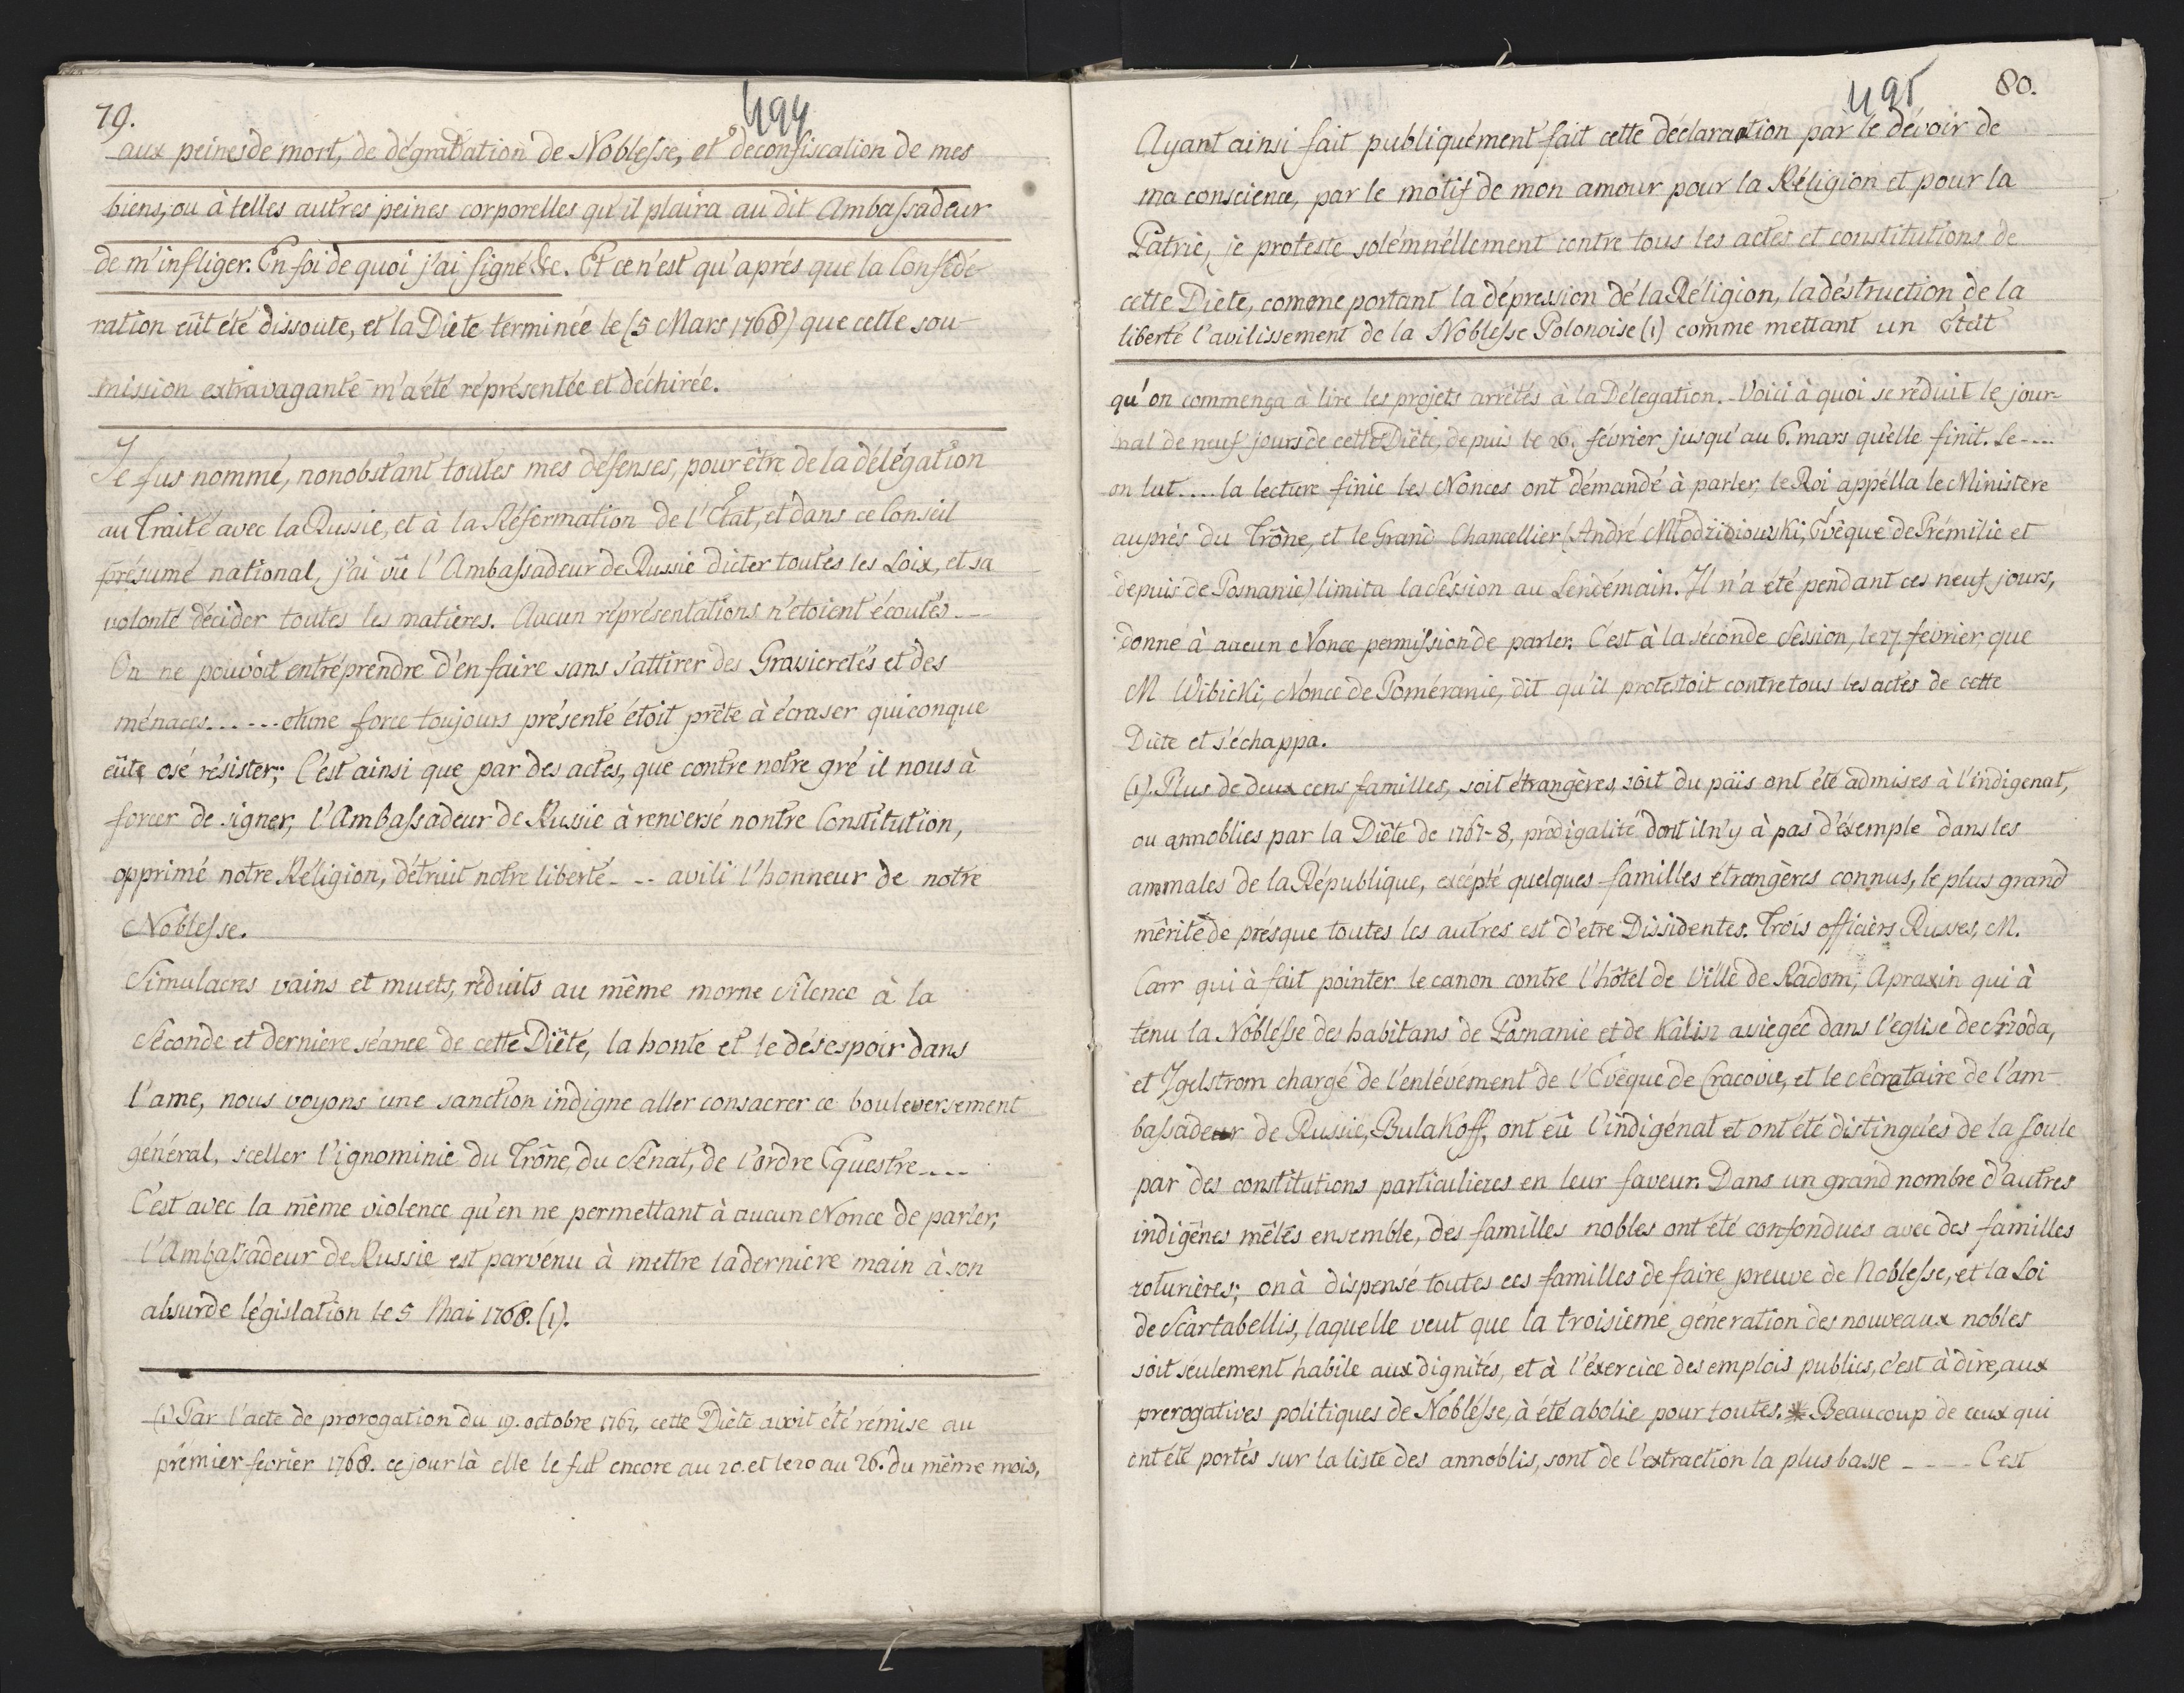 79.
494
aux peines de mort, de dégradation de Noblesse, et deconfiscation de mes
biens, ou à telles autres peines corporelles qu'il plaira au dit Ambassadeur
de m'infliger. En foi de quoi j'ai signé &c. Et ce n'est qu'aprés que la Confédé-
ration eût été dissoute, et la Diete terminée le (5 Mars 1768) que cette sou-
mission extravagante m'a été réprésentée et déchirée.
Je fus nommé, nonobstant toutes mes défenses, pour être de la délégation
au Traité avec la Russie, et à la Réformation de l'Etat, et dans ce Conseil
présumé national, j'ai vû l'Ambassadeur de Russie dicter toutes les Loix, et sa
volonté décider toutes les matieres. Aucun réprésentations n'etoient écoutés ---
On ne pouvoit entréprendre d'en faire sans s'attirer des Grauieretés et des
ménaces...--- et une force toujours présenté étoit prête à écraser quiconque
eûte osé résister; C'est ainsi que par des actes, que contre notre gré il nous à
forcer de signer, l'Ambassadeur de Russie à renversé nontre Constitution,
opprimé notre Réligion, détruit notre liberté - -- avili l'honneur de notre
Noblesse.
Simulacres vains et muets, réduits au même morne silence à la
Séconde et derniere séance de cette Diête, la honte et le désespoir dans
l'ame, nous voyons une sanction indigne aller consacrer ce bouleversement
général, sceller l'ignominie du Trône, du Sénat, de l'ordre Equestre ----
C'est avec la même violence qu'en ne permettant à aucun Nonce de parler,
l'Ambassadeur de Russie est parvénu à mettre la derniere main à son
absurde législation le 5 Mai 1768. (1).
(1) Par l'acte de prorogation du 19. octobre 1767, cette Diète avoit été rémise au
prémier fevrier 1768. ce jour là elle le fut encore au 20. et le 20 au 26. du même mois,
495
80.
Ayant ainsi fait publiquément fait cette déclaraction par le dévoir de
ma conscience, par le motif de mon amour pour la Réligion et pour la
Patrie, je proteste solémnéllement contre tous les actes et constitutions de
cette Diete, comme portant la dépression dé la Réligion, la déstruction de la
liberté l'avilissement de la Noblesse Polonoise (1) comme mettant un
qu'on commença à lire les projets arrêtés à la Délegation. - Voici à quoi se réduit le jour-
nal de neuf jours de cette Diéte, depuis le 26. février jusqu'au 6. mars qu'elle finit. Le ----
on lut .... la lecture finie les Nonces ont démandé à parler, le Roi appélla le Ministere
auprés du Trône, et le Grand Chancellier (André Młodzidiowski, Evêque de Prémilie et
depuis de Posnanie) limita la séssion au Lendémain. Il n'a été pendant ces neuf jours,
donné à aucun Nonce permission de parler. C'est à la séconde Session, le 27. fevrier, que
M Wibicki, Nonce de Poméranie, dit qu'il protestoit contre tous les actes de cette
Diéte et s'échappa.
(1). Plus de deux cens familles, soit étrangères, soit du païs ont été admises à l'indigenat,
ou annoblies par la Diête de 1767-8, prodigalité dont il n'y à pas d'éxemple dans les
ammales de la République, excépté quelques familles étrangères connus, le plus grand
mérite de présque toutes les autres est d'etre Dissidentes. Trois officiers Russes, M.
Carr qui à fait pointer le canon contre l'hôtel de Ville de Radom, Apraxin qui à
tenu la Noblesse des habitans de Posnanie et de Kalisz assiegée dans l'eglise de Szoda,
et Igelstrom chargé de l'enlévément de l'Evêque de Cracovie, et le sécrétaire de l'am-
bassadeur de Russie, Bulakoff, ont eû l'indigénat et ont été distingués de la foule
par des constitutions particulieres en leur faveur. Dans un grand nombre d'autres
indigênes mêlés ensemble, des familles nobles ont été confondues avec des familles
roturières; on à dispensé toutes ces familles de faire preuve de Noblesse, et la Loi
de Scartabellis, laquelle veut que la troisieme génération des nouveaux nobles
soit seulement habile aux dignités, et à l'éxercice des emplois publics, c'est à dire, aux
prerogatives politiques de Noblesse, à été abolie pour toutes. Beaucoup de ceux qui
ont été portés sur la liste des annoblis, sont de l'extraction la plus basse - --- C'est